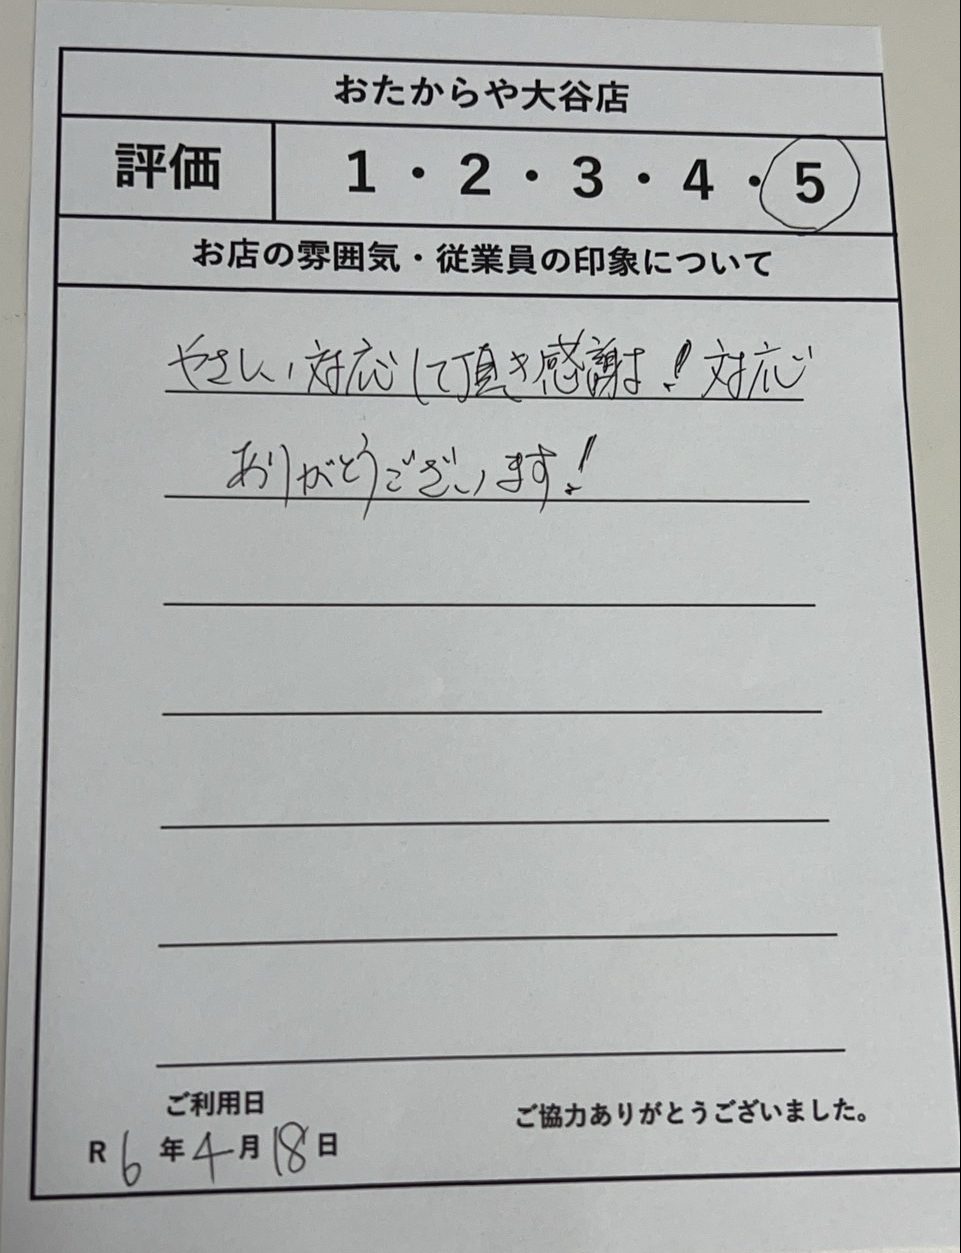 おたからや大谷店
評価 1・2・3・4・5
お店の雰囲気・従業員の印象について
やさしい対応して頂き感謝は!対応
ありがとうございます!
ご利用日
R6年4月18日
ご協力ありがとうございました。